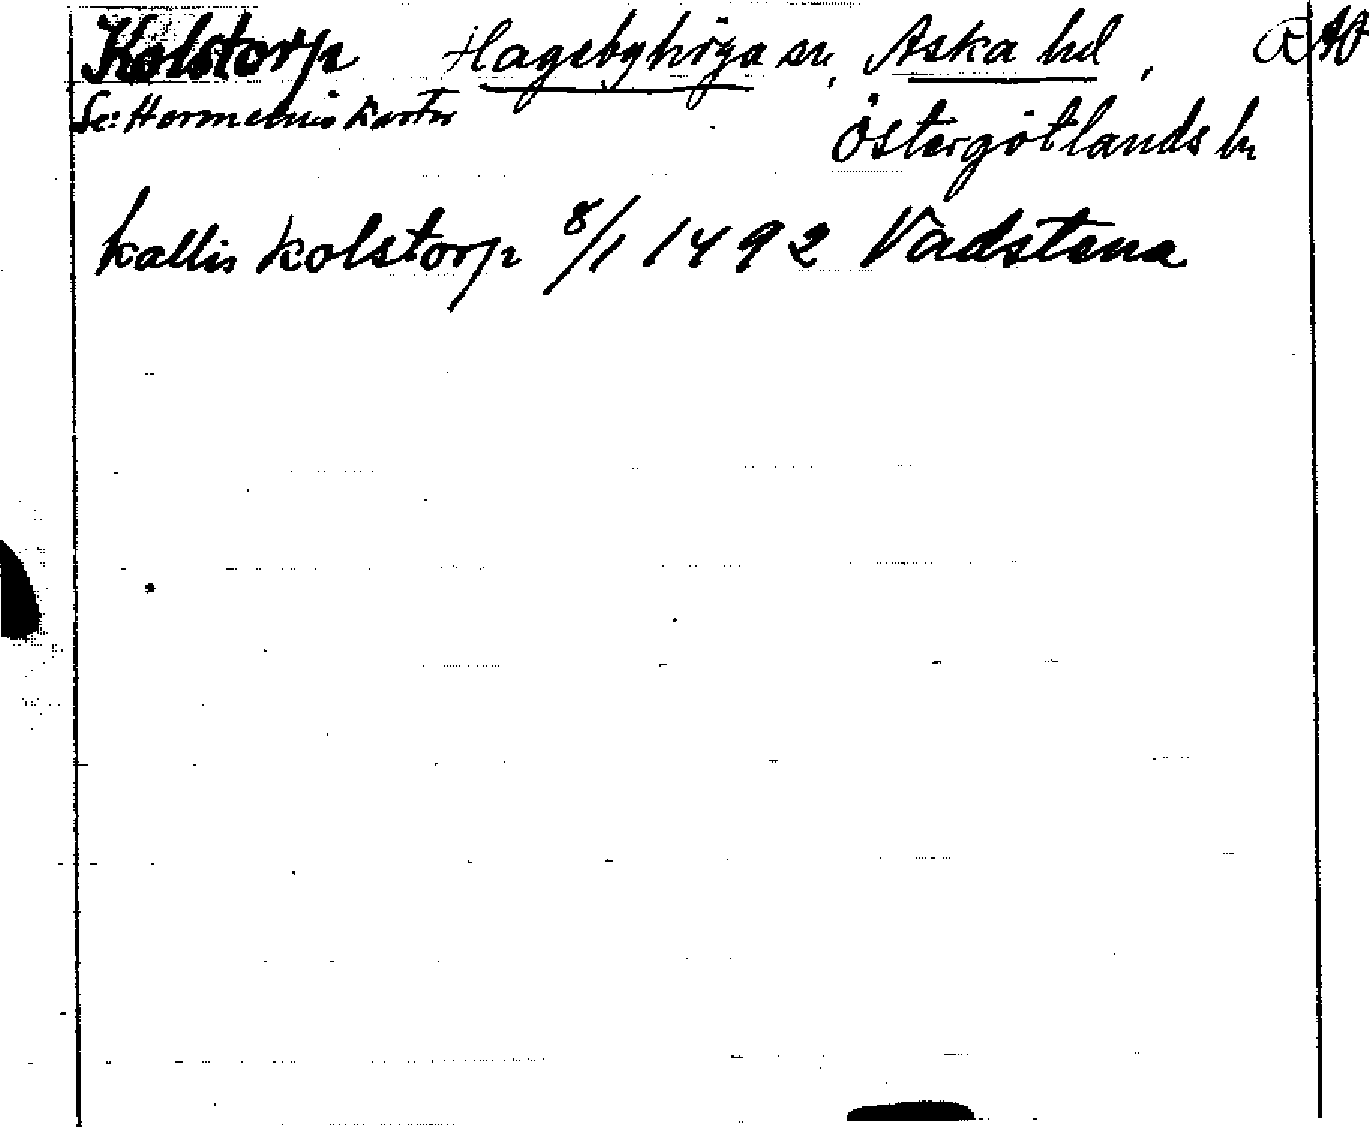 Kolstorp Hagebyhöga sn, Aska hd, RAO
Se: Hermelins karta
Östergötlands ln
kallis kolstorp 8/1 1492 Vadstena